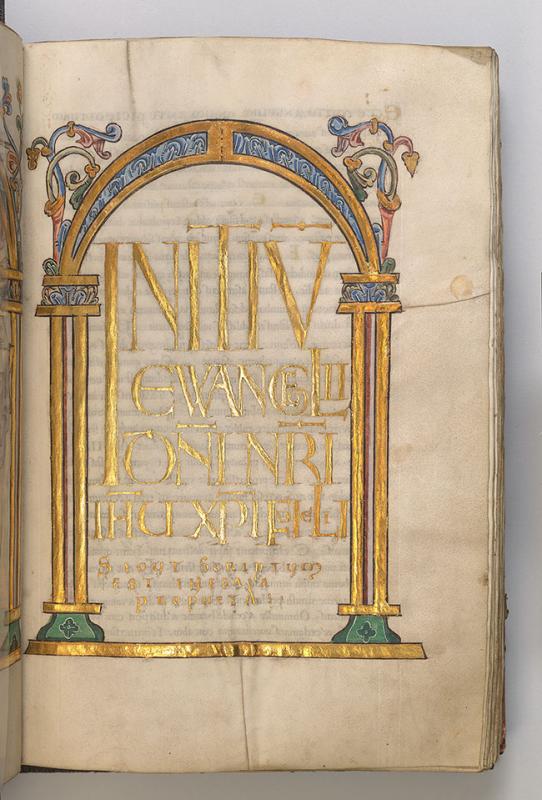 INITIV̅
EWANGELII
DN̅I NR̅I
IH̅U XP̅I
SICUT SCRIPTUM
EST IN ESAIA
PROPHETA: